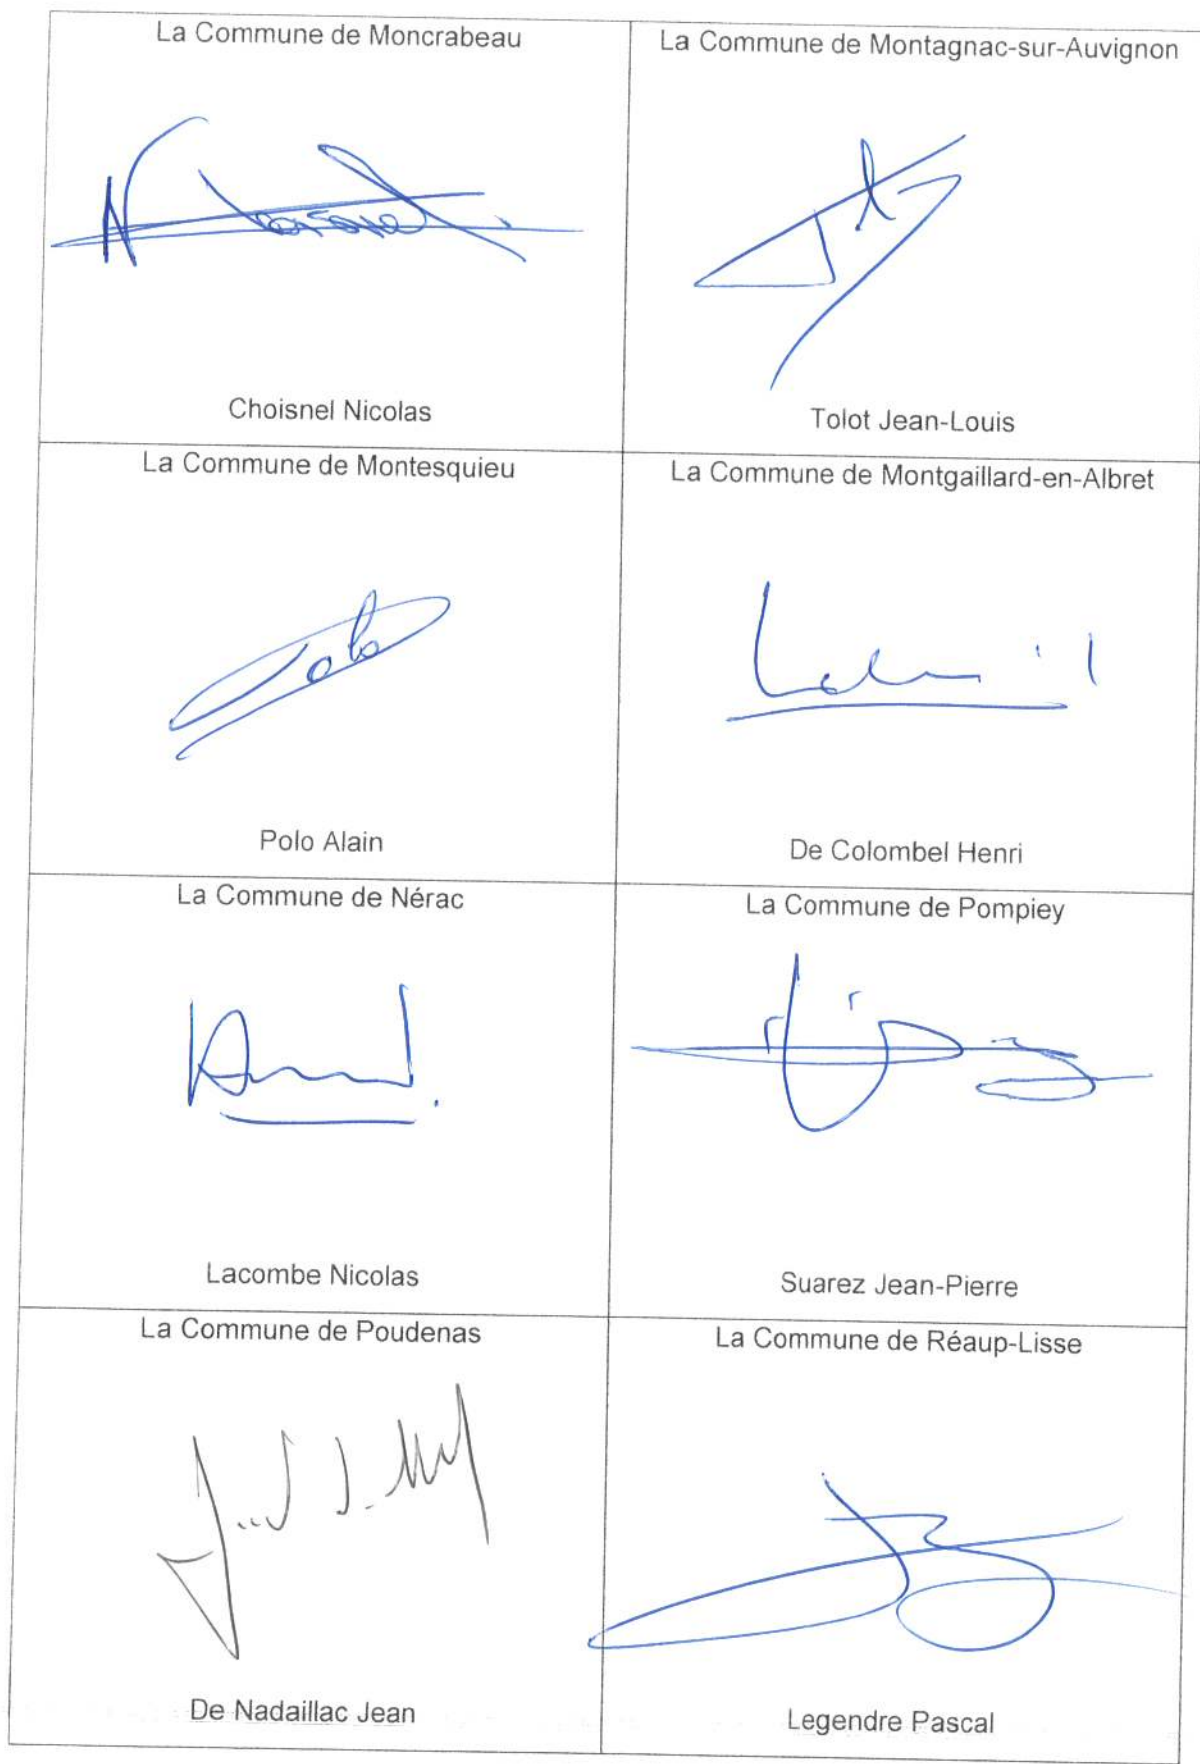 La Commune de Moncrabeau
Choisnel Nicolas
La Commune de Montagnac-sur-Auvignon
Tolot Jean-Louis
La Commune de Montesquieu
Polo Alain
La Commune de Montgaillard-en-Albret
De Colombel Henri
La Commune de Nérac
Lacombe Nicolas
La Commune de Pompiey
Suarez Jean-Pierre
La Commune de Poudenas
De Nadaillac Jean
La Commune de Réaup-Lisse
Legendre Pascal